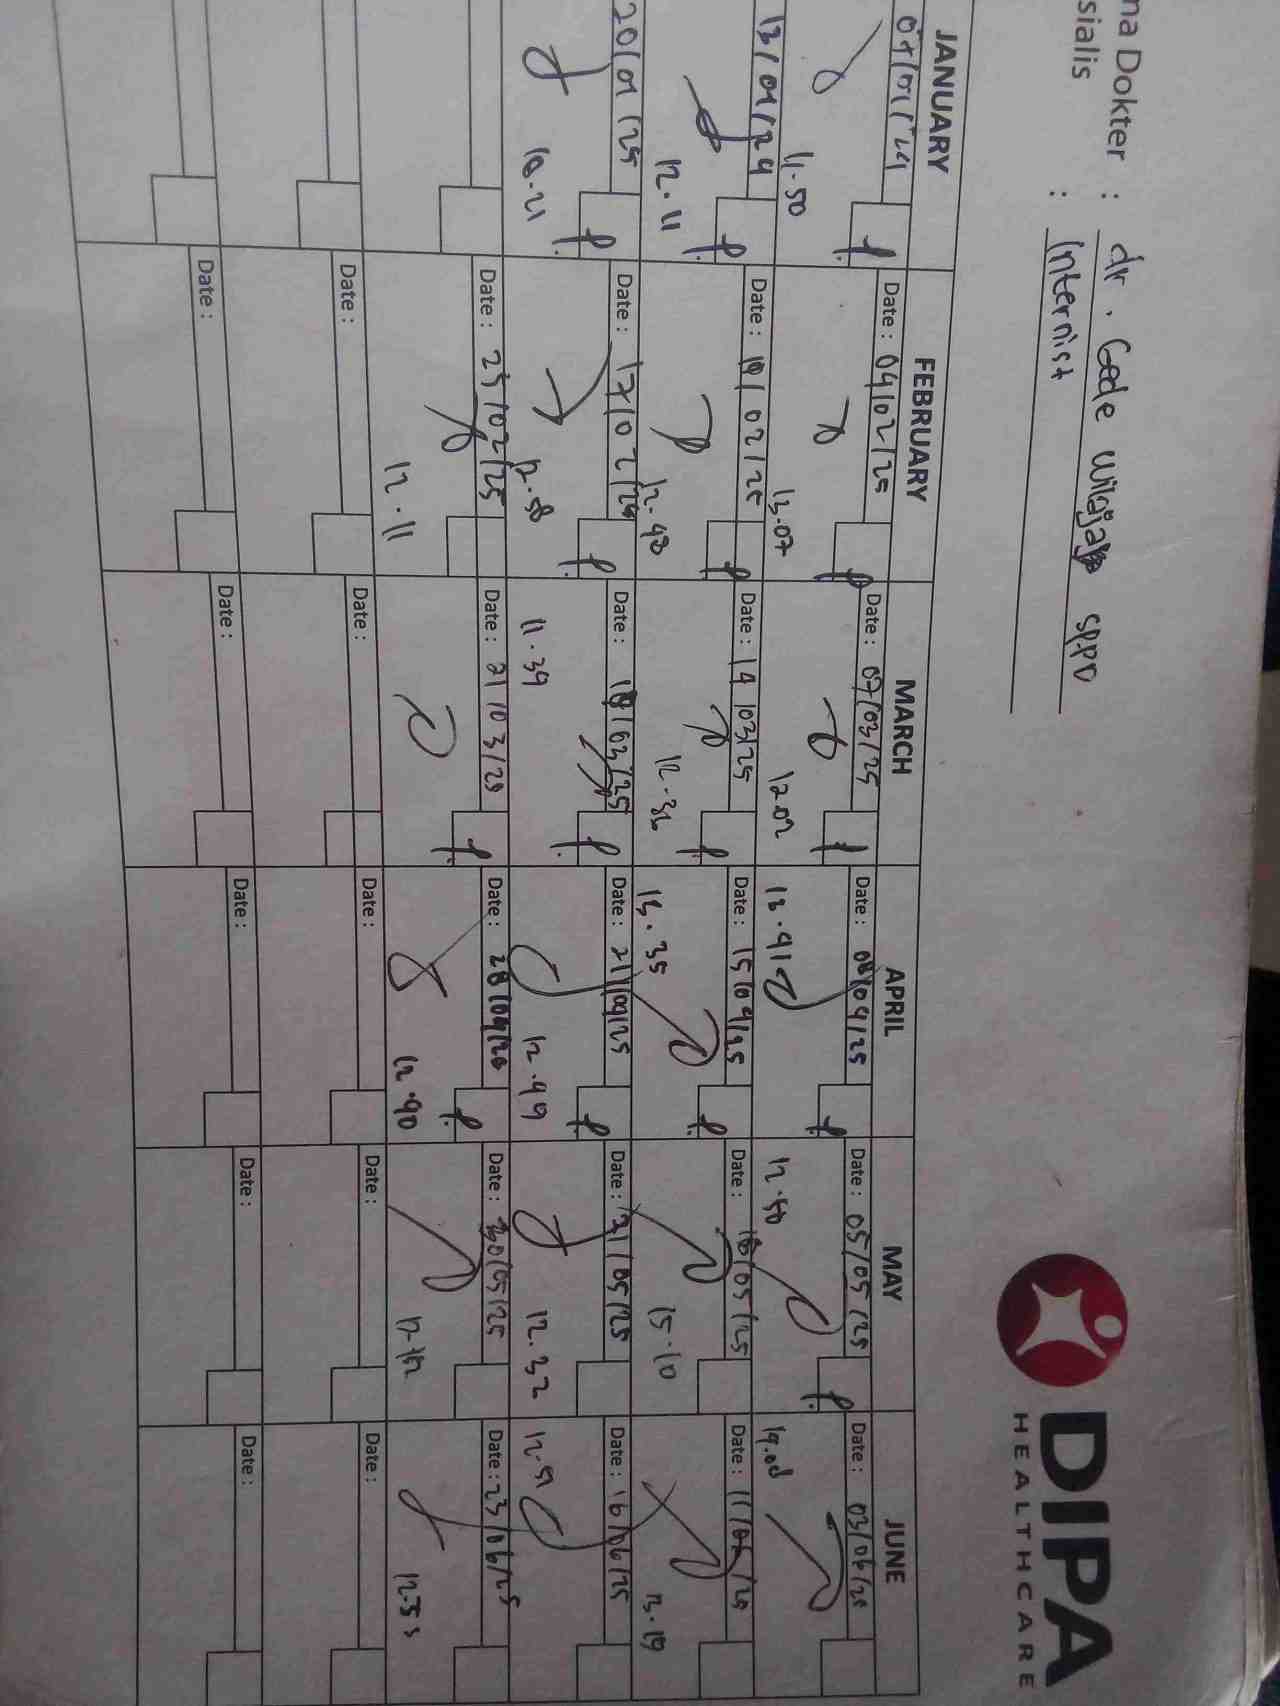 DIPA
HEALTHCARE
na Dokter : dr. Gede Wijaya SPPD
sialis : Internist
JANUARY FEBRUARY MARCH APRIL MAY JUNE
07/01/24 Date : 04/02/25 Date : 07/03/25 Date : 08/04/25 Date : 05/05/25 Date : 03/06/25
11.50 13.07 12.02 13.41 12.50 14.08
13/01/24 Date : 10/02/25 Date : 14/03/25 Date : 15/04/25 Date : 16/05/25 Date : 11/06/25
12.11 12.48 12.36 13.35 15.10 13.19
20/01/25 Date : 17/02/25 Date : 18/03/25 Date : 21/04/25 Date : 21/05/25 Date : 16/06/25
10.21 12.58 11.39 12.49 12.32 12.51
Date : 25/02/25 Date : 21/03/25 Date : 28/04/25 Date : 30/05/25 Date : 23/06/25
12.11 12.40 12.12 12.33
Date : Date : Date : Date : Date :
Date : Date : Date : Date : Date :